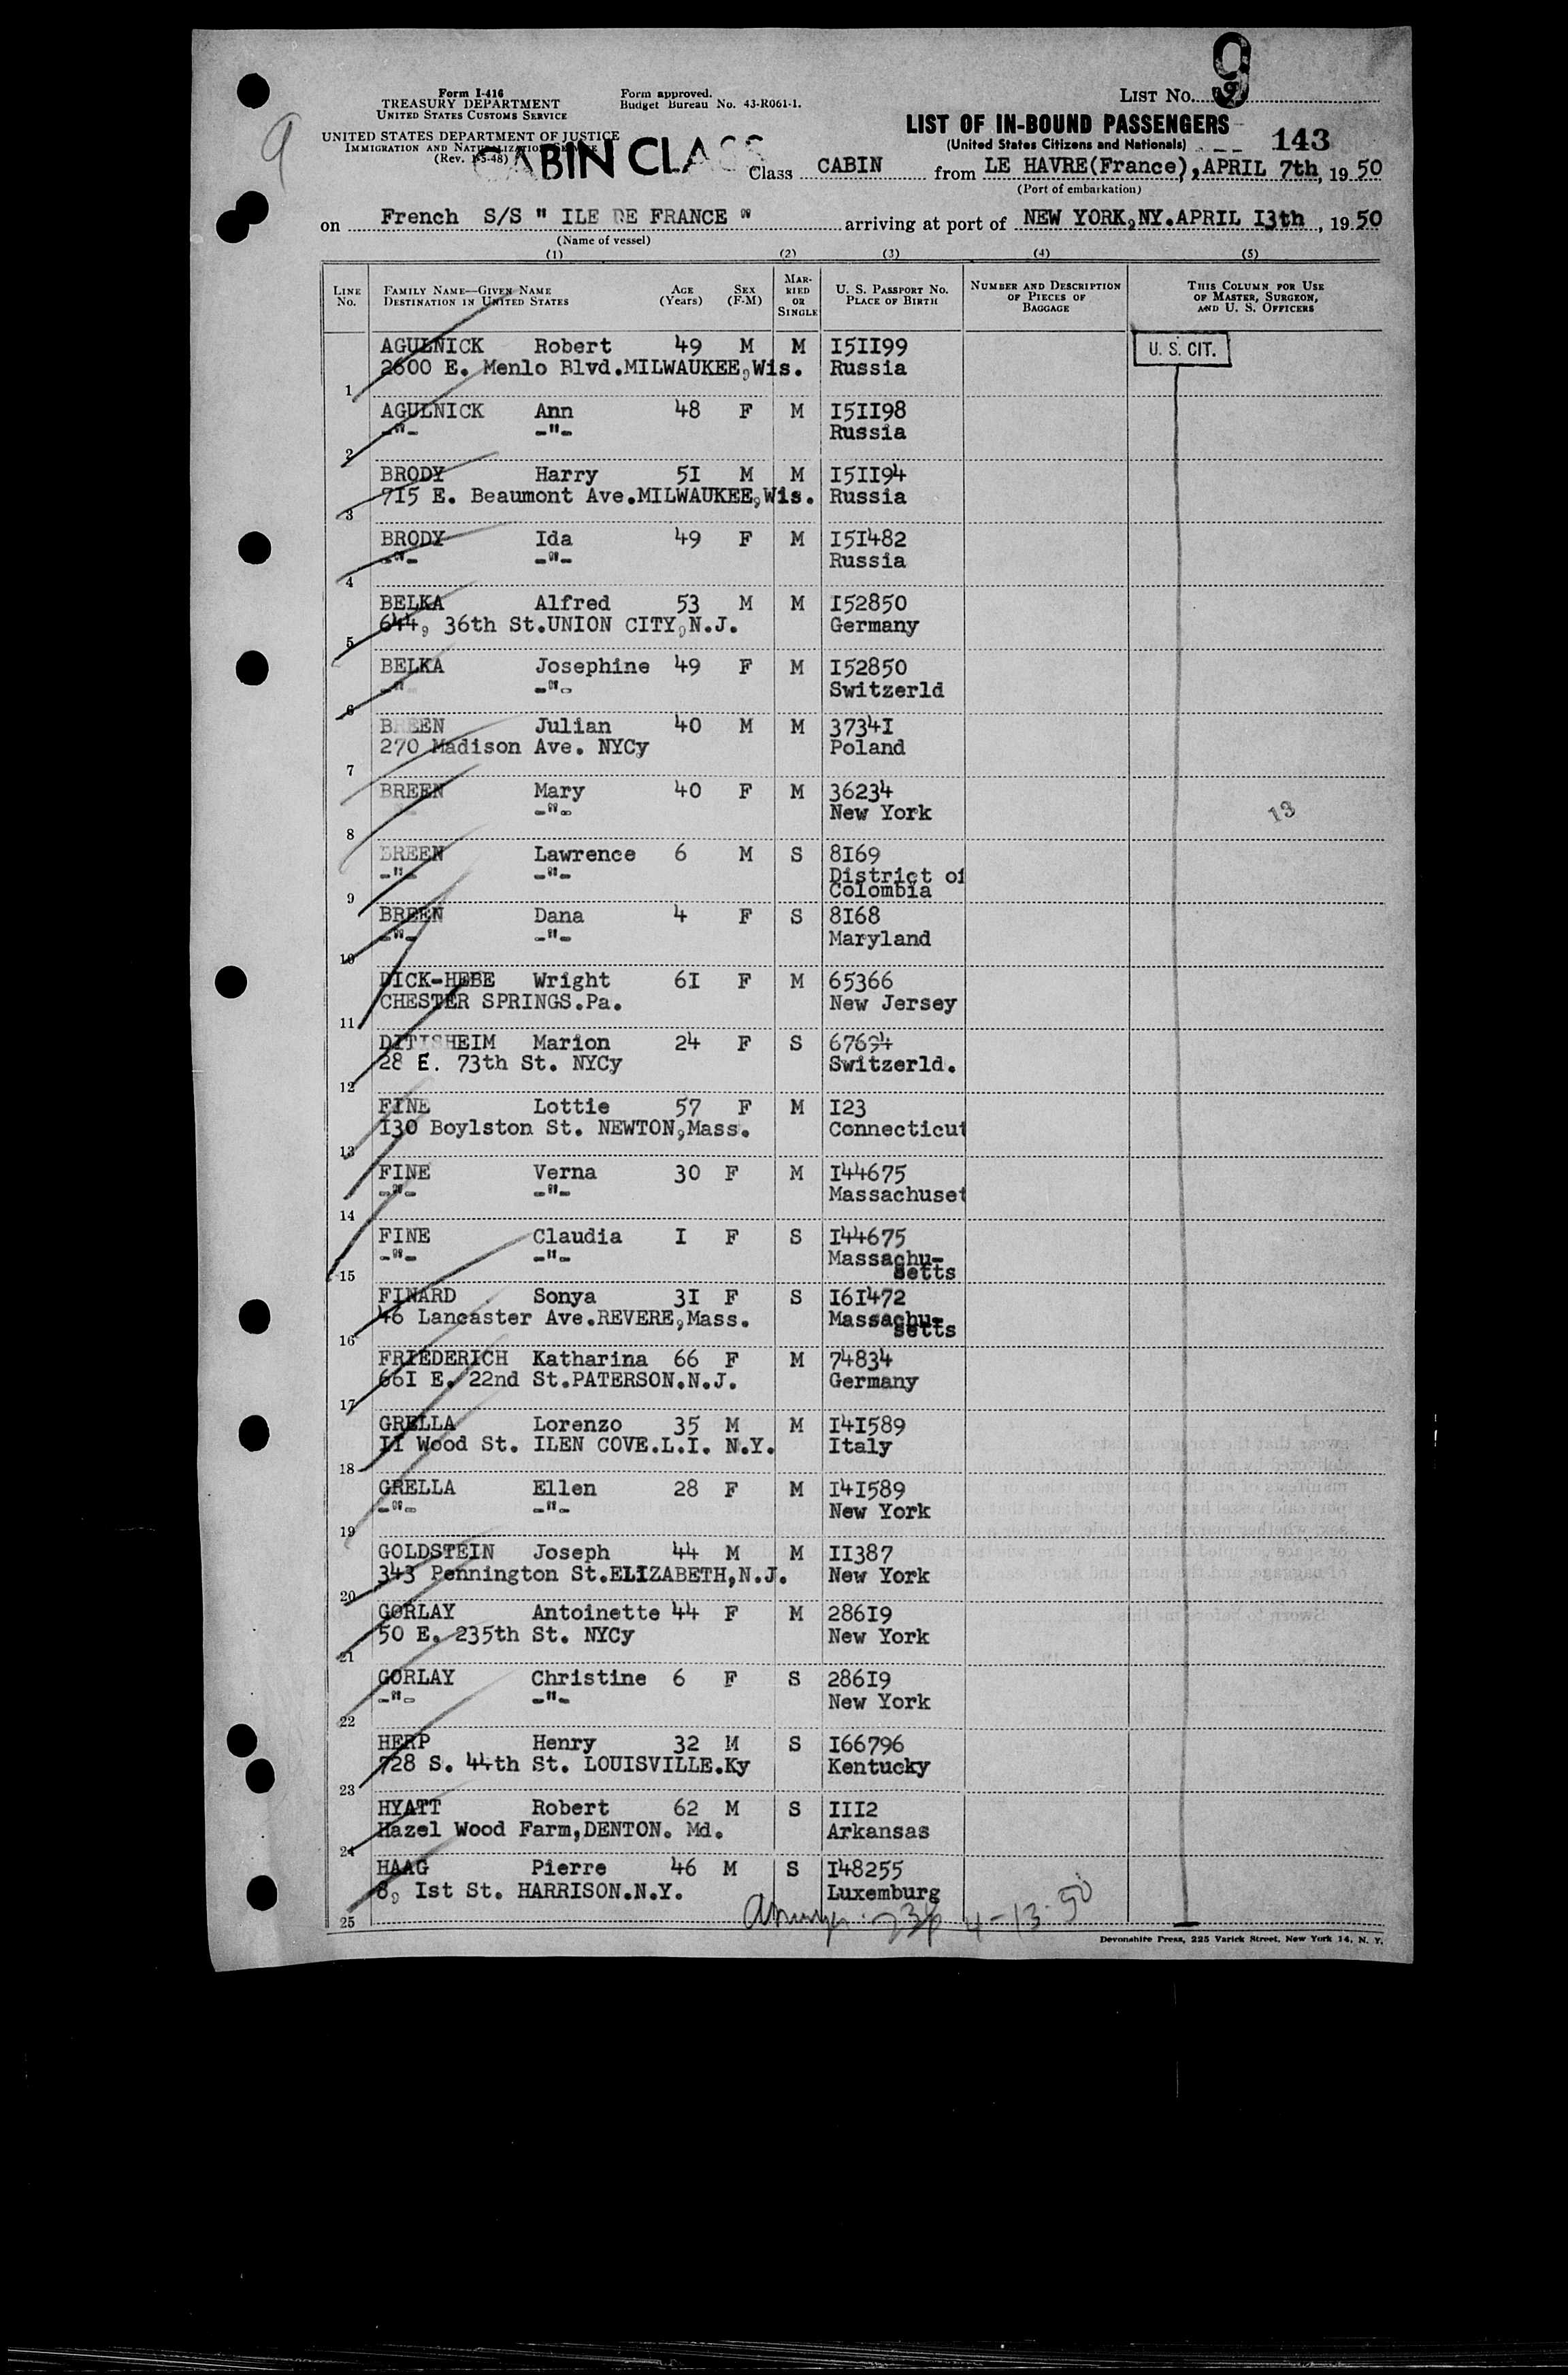 9
LIST No. 9
Form I-416
TREASURY DEPARTMENT
UNITED STATES CUSTOMS SERVICE
Form approved.
Budget Bureau No. 43-R061-1.
UNITED STATES DEPARTMENT OF JUSTICE
IMMIGRATION AND NATURALIZATION SERVICE
(Rev. 1-5-48)
CABIN CLASS
9
LIST OF IN-BOUND PASSENGERS
(United States Citizens and Nationals)
143
Class CABIN from LE HAVRE(France),APRIL 7th, 1950
(Port of embarkation)
on French S/S " ILE DE FRANCE " arriving at port of NEW YORK,NY.APRIL I3th, 1950
(Name of vessel)
(1) (2) (3) (4) (5)
LINE NO. FAMILY NAME—GIVEN NAME DESTINATION IN UNITED STATES AGE (Years) SEX (F-M) MARRIED OR SINGLE U. S. PASSPORT NO. PLACE OF BIRTH NUMBER AND DESCRIPTION OF PIECES OF BAGGAGE THIS COLUMN FOR USE OF MASTER, SURGEON, AND U. S. OFFICERS
AGULNICK Robert 49 M M I5II99 U. S. CIT.
2600 E. Menlo Blvd.MILWAUKEE,Wis. Russia
1
AGULNICK Ann 48 F M I5II98
-"- -"- Russia
2
BRODY Harry 5I M M I5II94
715 E. Beaumont Ave.MILWAUKEE,Wis. Russia
3
BRODY Ida 49 F M I5I482
-"- -"- Russia
4
BELKA Alfred 53 M M I52850
644, 36th St.UNION CITY,N.J. Germany
5
BELKA Josephine 49 F M I52850
-"- -"- Switzerld
6
BREEN Julian 40 M M 3734I
270 Madison Ave. NYCy Poland
7
BREEN Mary 40 F M 36234
-"- New York
8
13
BREEN Lawrence 6 M S 8I69
-"- -"- District of
Colombia
9
BREEN Dana 4 F S 8I68
-"- -"- Maryland
10
DICK-HEBE Wright 6I F M 65366
CHESTER SPRINGS.Pa. New Jersey
11
DITISHEIM Marion 24 F S 67694
28 E. 73th St. NYCy Switzerld.
12
FINE Lottie 57 F M I23
I30 Boylston St. NEWTON,Mass. Connecticut
13
FINE Verna 30 F M I44675
-"- -"- Massachuset
14
FINE Claudia I F S I44675
-"- -"- Massachu-
setts
15
FINARD Sonya 3I F S I6I472
46 Lancaster Ave.REVERE,Mass. Massachu-
setts
16
FRIEDERICH Katharina 66 F M 74834
66I E. 22nd St.PATERSON.N.J. Germany
17
GRELLA Lorenzo 35 M M I4I589
II Wood St. ILEN COVE.L.I. N.Y. Italy
18
GRELLA Ellen 28 F M I4I589
-"- -"- New York
19
GOLDSTEIN Joseph 44 M M II387
343 Pennington St.ELIZABETH,N.J. New York
20
GORLAY Antoinette 44 F M 286I9
50 E. 235th St. NYCy New York
21
GORLAY Christine 6 F S 286I9
-"- -"- New York
22
HERP Henry 32 M S I66796
728 S. 44th St. LOUISVILLE.Ky Kentucky
23
HYATT Robert 62 M S III2
Hazel Wood Farm,DENTON. Md. Arkansas
24
HAAG Pierre 46 M S I48255
8, Ist St. HARRISON.N.Y. Luxemburg
25
4-13-50
Devonshire Press, 225 Varick Street, New York 14, N. Y.